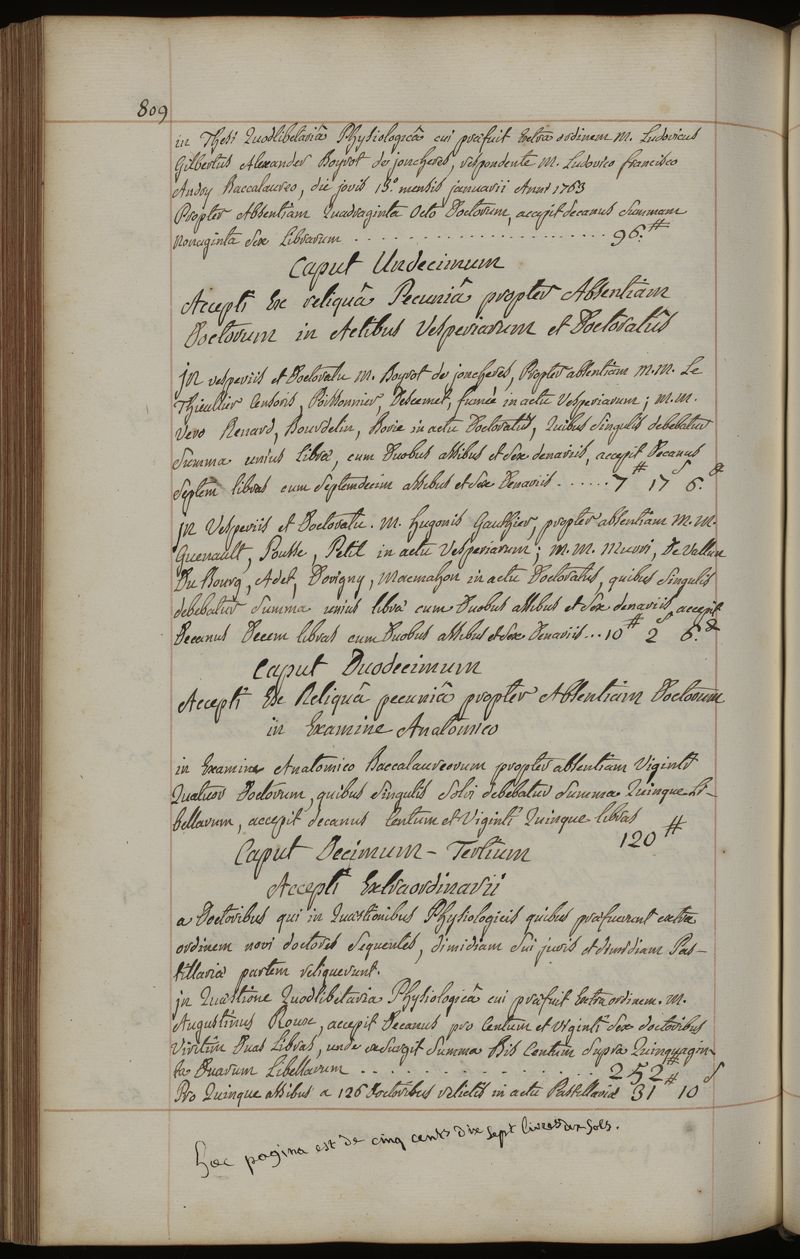 809
in Thesi Quodlibetariâ Physiologicâ cui præfuit Extra ordinem M. Ludovicus
Gilbertus Alexander Boyrot de joncheres, respondente M. Ludovico francisco
Andry Baccalaureo, die jovis 13.º mensis januarii Anni 1763
Propter Absentiam Quadraginta Octo Doctorum, accepit decanus Summam
Nonaginta Sex Librarum . . . . . . . . . . . . . . . . . . . . . . . 96.#
Caput Undecimum
Accepti Ex reliquâ Pecuniâ propter Absentiam
Doctorum in Actibus Vesperiarum et Doctoratûs
jn vesperiis et Doctoratu M. Boyrot de joncheres, Propter absentiam M.M. Le
Thieullier Censoris, Poissonnier, Descemet, fumée in actu Vesperiarum; M.M.
Vero Renard, Bourdelin, Borie in actu Doctoratûs, Quibus Singulis debebatur
Summa unius Libræ, cum Duobus assibus et Sex denariis, accepit Decanus
Septem libras cum Septemdecim assibus et Sex Denariis . . . . . . 7# 17 s 6.d
jn Vesperiis et Doctoratu. M. Hugonis Gauthier, propter absentiam M.M.
Guenault, Pousse, Petit in actu Vesperiarum; M.M. Murri, De Vallun
Du Bourg, Adet, Dovigny, Macmahon in actu Doctoratus, quibus Singulis
debebatur Summa unius libræ cum Duobus assibus et Sex denariis accepit
Decanus Decem libras cum Duobus assibus et Sex Denariis . . . 10# 2 s 6.d
Caput Duodecimum
Accepti Ex Reliquâ pecuniâ propter Absentiam Doctorum
in Examine Anatomico
in Examine Anatomico Baccalaureorum propter absentiam Viginti
Quatuor Doctorum, quibus Singulis Solvi debebatur Summa Quinque Li-
bellarum, accepit decanus Centum et Viginti Quinque libras
120#
Caput Decimum-Tertium
Accepti Extraordinarii
a Doctoribus qui in Quæstionibus Physiologicis quibus præfuerunt extra
ordinem novi doctores Sequentes, dimidiam Sui juris et dimidiam Pas-
tillariæ partem reliquerunt.
jn Quæstione Quodlibetaria Physiologicâ cui præfuit Extra ordinem. M.
Augustinus Roux, accepit Decanus pro Centum et viginti Sex doctoribus
Viritim Duas Libras, unde exsurgit Summa Bis Centum Supra Quinquagin-
ta Duarum Libellarum . . . . . . . . . . . . . . . 252#
Pro Quinque assibus a 126 Doctoribus relictis in actu Pastillariæ 31# 10 s
hæc pagina est de cinq cents dix Sept livres dix Sols.